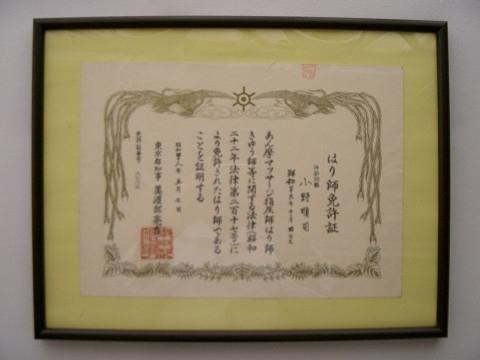 はり師免許証
神奈川県
小野順司
あん摩マッサージ指圧師はり師
きゆう師等に関する法律(昭和
二十二年法律第二百十七号)に
より免許されたはり師である
ことを証明する
東京都知事 美濃部亮吉